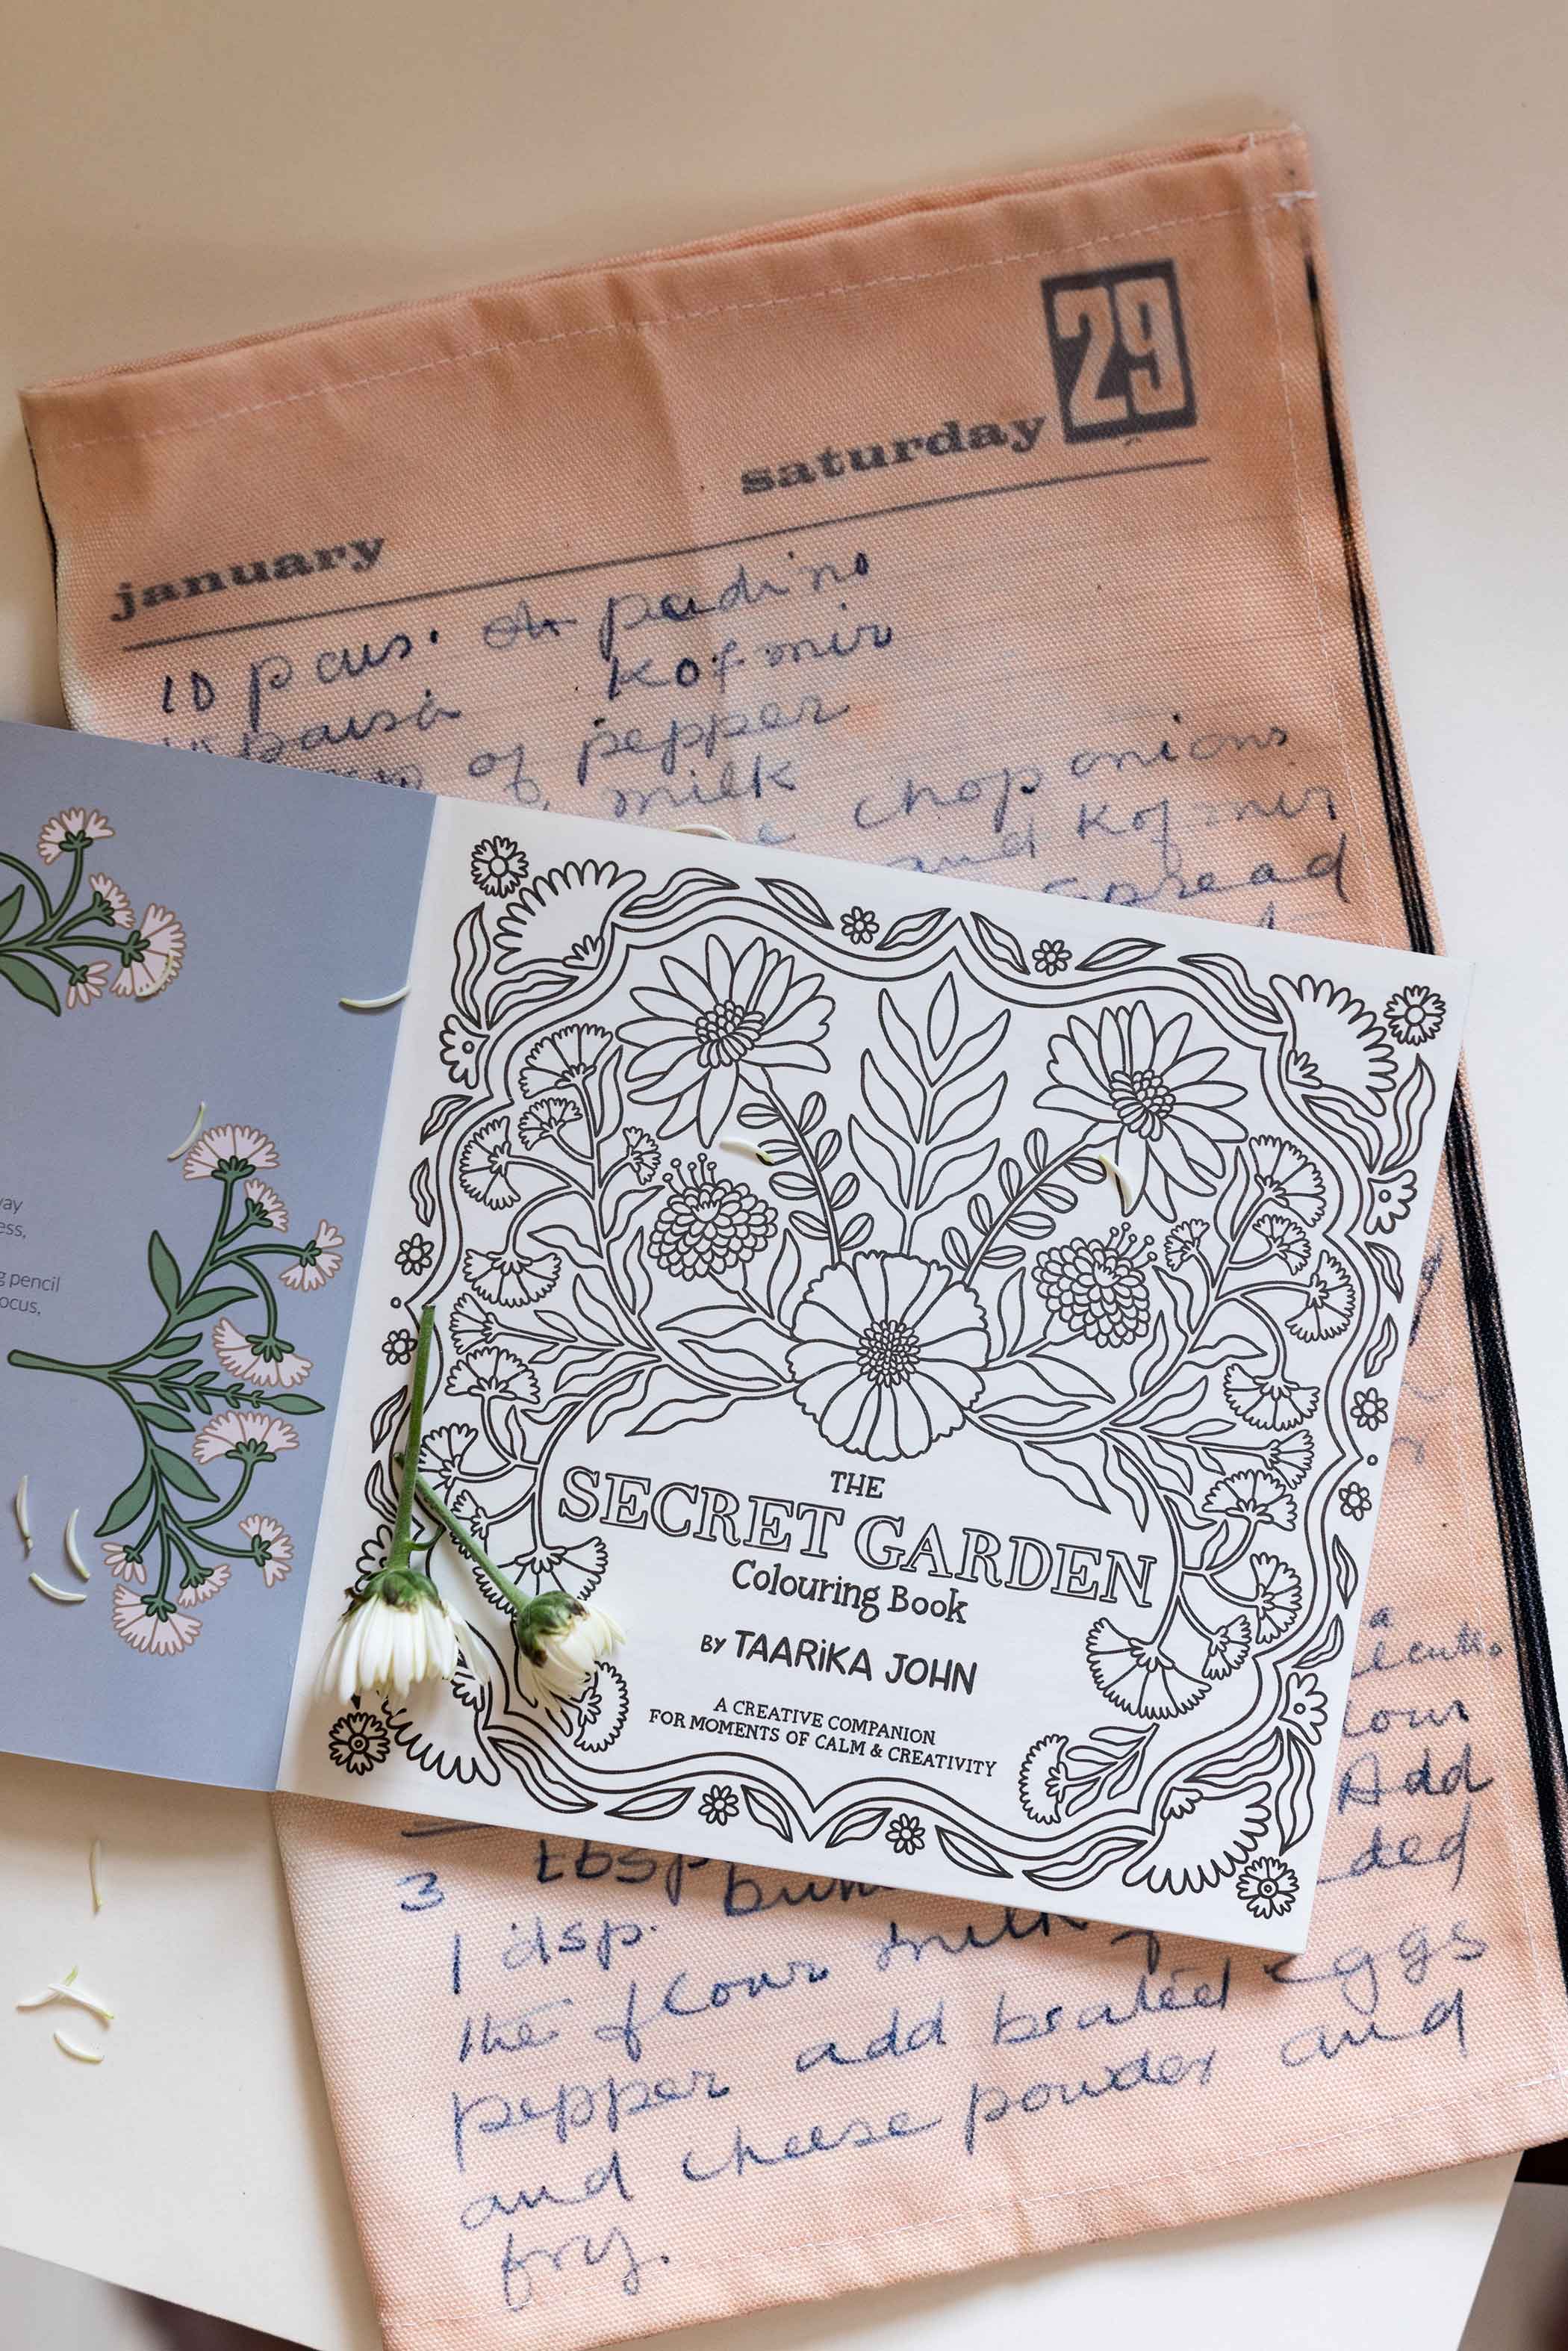 29
saturday
january
10 pcus. pudino
paisa Kofmir
of pepper
milk
chop onions
and Kof.mir
spread
way
ess,
g pencil
ocus,
THE
SECRET GARDEN
Colouring Book
BY TAARiKA JOHN
A CREATIVE COMPANION
FOR MOMENTS OF CALM & CREATIVITY
a
Add
3 tbsp
1 dsp. milk
the flour
pepper add beated eggs
and cheese powder and
fry.